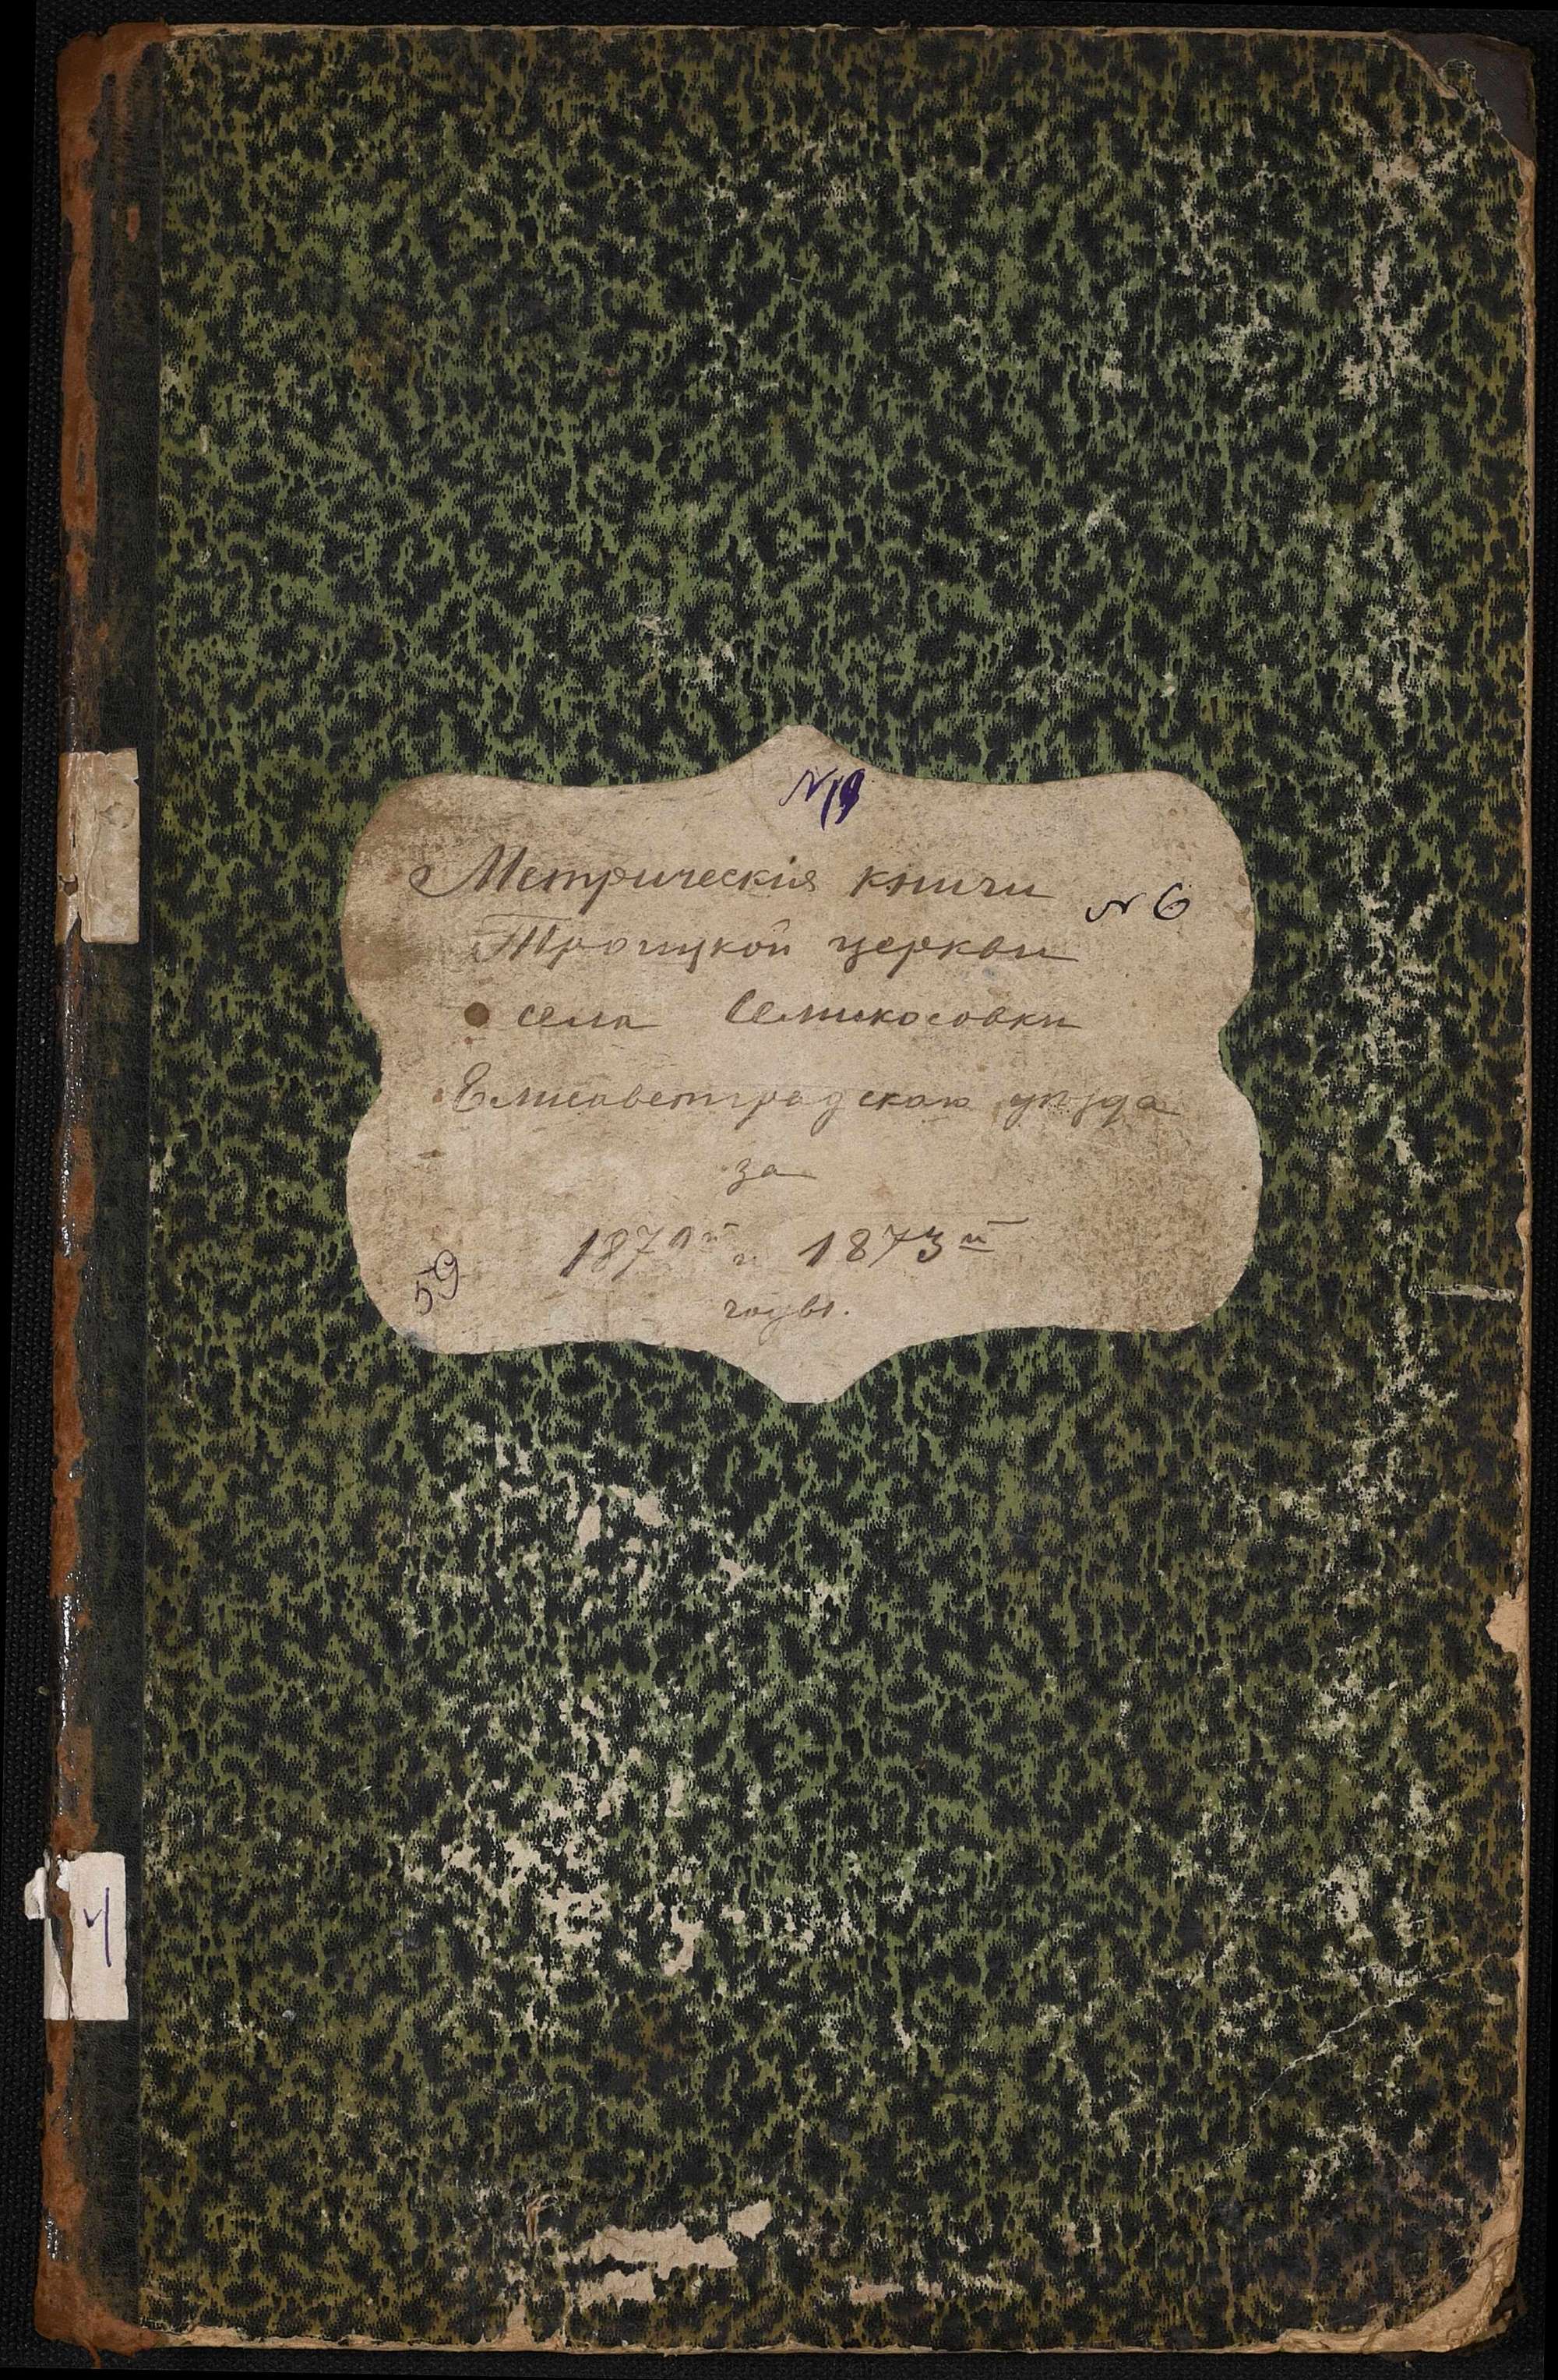 N 19
Метрическия книги
N 6
Троицкой церкви
села Семикосовки
Елисаветградскаго уѣзда
за
й и 1873й
59
годы.